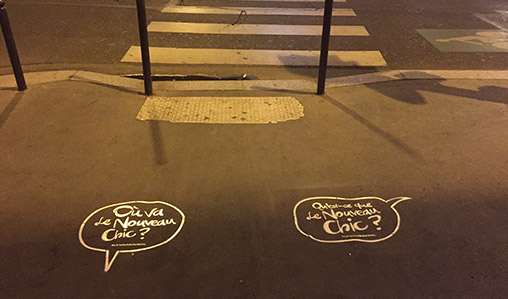 Où va
Le Nouveau
Chic ?
Qu'est-ce que
Le Nouveau
Chic ?